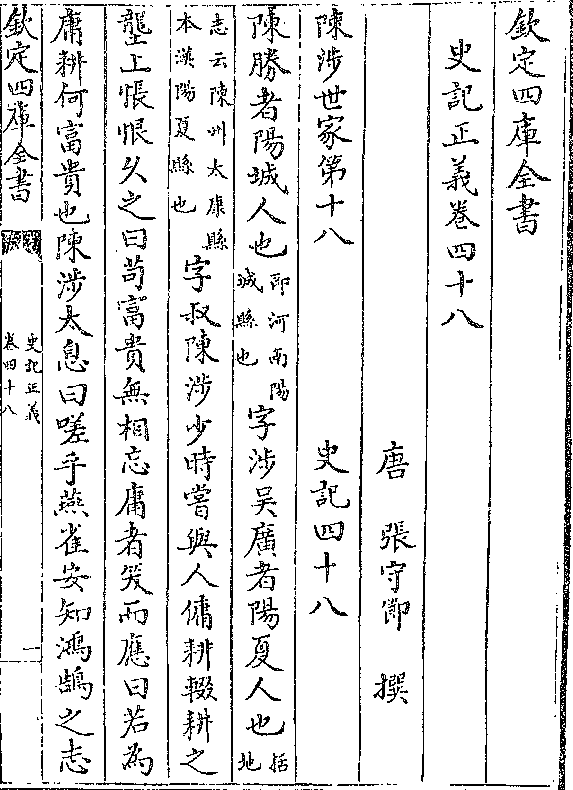 欽定四庫全書
史記正義卷四十八
唐 張守節 撰
陳涉世家第十八 史記四十八
陳勝者陽城人也即河南陽城縣也字涉吳廣者陽夏人也括地
志云陳州太康縣本漢陽夏縣也字叔陳涉少時嘗與人傭耕輟耕之
壟上悵恨久之曰苟富貴無相忘庸者笑而應曰若為
庸耕何富貴也陳涉太息曰嗟乎燕雀安知鴻鵠之志
欽定四庫全書 史記正義卷四十八 一